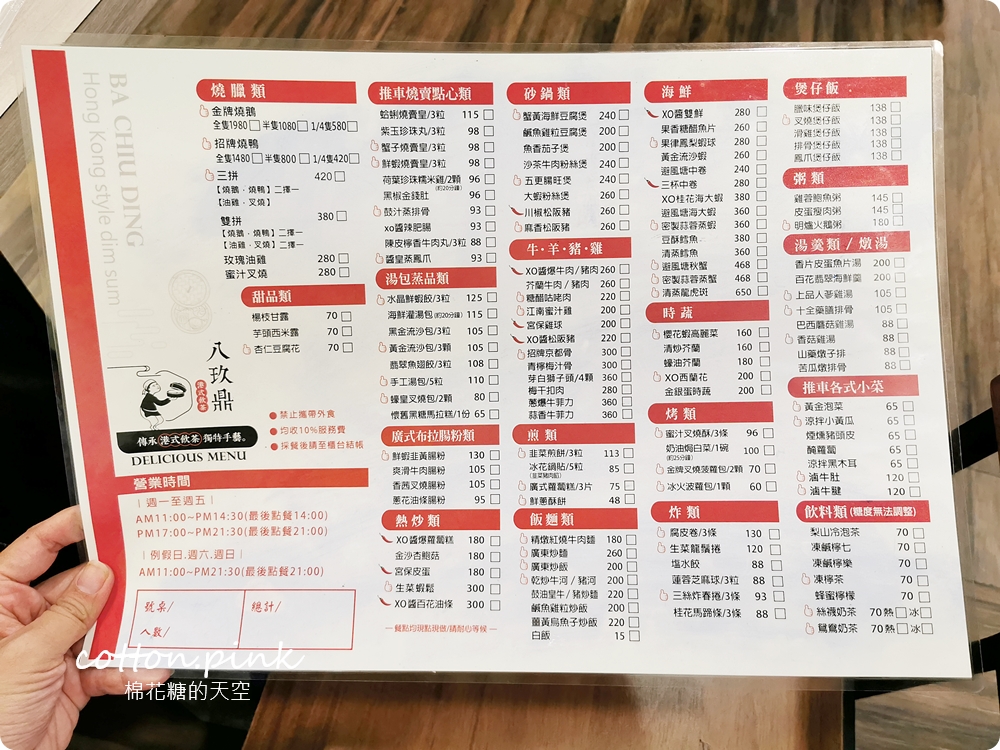 BA CHIU DING
Hong Kong style dim sum
燒臘類
金牌燒鵝
全隻1980 半隻1080 1/4隻580
招牌燒鴨
全隻1480 半隻800 1/4隻420
三拼 420
【燒鵝，燒鴨】二擇一
【油雞，叉燒】
雙拼 380
【燒鵝，燒鴨】二擇一
【油雞，叉燒】二擇一
玫瑰油雞 280
蜜汁叉燒 280
甜品類
楊枝甘露 70
芋頭西米露 70
杏仁豆腐花 70
八玖鼎
港式飲茶
傳承港式飲茶獨特手藝。
DELICIOUS MENU
●禁止攜帶外食
●均收10%服務費
●採餐後請至櫃台結帳
營業時間
|週一至週五|
AM11:00~PM14:30(最後點餐14:00)
PM17:00~PM21:30(最後點餐21:00)
|例假日.週六.週日|
AM11:00~PM21:30(最後點餐21:00)
號桌/
總計/
人數/
推車燒賣點心類
蛤蜊燒賣皇/3粒 115
紫玉珍珠丸/3粒 98
蟹子燒賣皇/3粒 98
鮮蝦燒賣皇/3粒 98
荷葉珍珠糯米雞/2顆 96
(約20分鐘)
黑椒金錢肚 96
鼓汁蒸排骨 93
xo醬辣肥腸 93
陳皮檸香牛肉丸/3粒 88
醬皇蒸鳳爪 93
湯包蒸品類
水晶鮮蝦餃/3粒 125
海鮮灌湯包(約20分鐘) 115
黑金流沙包/3粒 105
黃金流沙包/3顆 105
翡翠魚翅餃/3粒 108
手工湯包/5粒 110
蠔皇叉燒包/2顆 80
懷舊黑糖馬拉糕/1份 65
廣式布拉腸粉類
鮮蝦韭黃腸粉 130
爽滑牛肉腸粉 105
香茜叉燒腸粉 105
蔥花油條腸粉 95
熱炒類
XO醬爆蘿蔔糕 180
金沙杏鮑菇 180
宮保皮蛋 180
生菜蝦鬆 300
XO醬百花油條 300
—餐點均現點現做/請耐心等候—
砂鍋類
蟹黃海鮮豆腐煲 240
鹹魚雞粒豆腐煲 200
魚香茄子煲 200
沙茶牛肉粉絲煲 240
五更腸旺煲 240
大蝦粉絲煲 260
川椒松阪豬 260
麻香松阪豬 260
牛·羊·豬·雞
XO醬爆牛肉/豬肉 260
芥蘭牛肉/豬肉 260
糖醋咕咾肉 220
江南蜜汁雞 220
宮保雞球 200
XO醬松阪豬 220
招牌京都骨 300
青檸梅汁骨 300
芽白獅子頭/4顆 360
梅干扣肉 280
蔥爆牛菲力 360
蒜香牛菲力 360
煎類
韭菜煎餅/3粒 113
冰花鍋貼/5粒 85
(韭菜豬肉餡)
廣式蘿蔔糕/3片 75
鮮蔥酥餅 48
飯麵類
精燉紅燒牛肉麵 180
廣東炒麵 260
廣東炒飯 200
乾炒牛河/豬河 200
鼓油皇牛/豬炒麵 220
鹹魚雞粒炒飯 200
薑黃烏魚子炒飯 220
白飯 15
海鮮
XO醬雙鮮 280
果香糖醋魚片 260
果律鳳梨蝦球 280
黃金流沙蝦 260
避風塘中卷 240
三杯中卷 280
XO桂花海大蝦 380
避風塘海大蝦 360
密製蒜蓉蒸蝦 360
豆酥鱈魚 380
清蒸鱈魚 360
避風塘秋蟹 468
密製蒜蓉蒸蟹 468
清蒸龍虎斑 650
時蔬
櫻花蝦高麗菜 160
清炒芥蘭 160
蠔油芥蘭 180
XO西蘭花 200
金銀蛋時蔬 200
烤類
蜜汁叉燒酥/3條 96
奶油焗白菜/1碗 100
(約25分鐘)
金牌叉燒菠蘿包/2顆 70
冰火波蘿包/1顆 60
炸類
腐皮卷/3條 130
生菜龍鬚捲 120
塩水餃 88
蓮蓉芝麻球/3粒 88
三絲炸春捲/3條 93
桂花馬蹄條/3條 88
煲仔飯
臘味煲仔飯 138
叉燒煲仔飯 138
滑雞煲仔飯 138
排骨煲仔飯 138
鳳爪煲仔飯 138
粥類
雞蓉鮑魚粥 145
皮蛋瘦肉粥 145
明爐火鵝粥 180
湯羹類/燉湯
香片皮蛋魚片湯 200
百花翡翠海鮮羹 200
上品人蔘雞湯 105
十全藥膳排骨 105
巴西蘑菇雞湯 88
香菇雞湯 88
山藥燉子排 88
苦瓜燉排骨 88
推車各式小菜
黃金泡菜 65
涼拌小黃瓜 65
煙燻豬頭皮 65
醃蘿蔔 65
涼拌黑木耳 65
滷牛肚 120
滷牛腱 120
飲料類(糖度無法調整)
梨山冷泡茶 70
凍鹹檸七 70
凍鹹檸樂 70
凍檸茶 70
蜂蜜檸檬 70
絲襪奶茶 70 熱 冰
鴛鴦奶茶 70 熱 冰
cotton.pink
棉花糖的天空